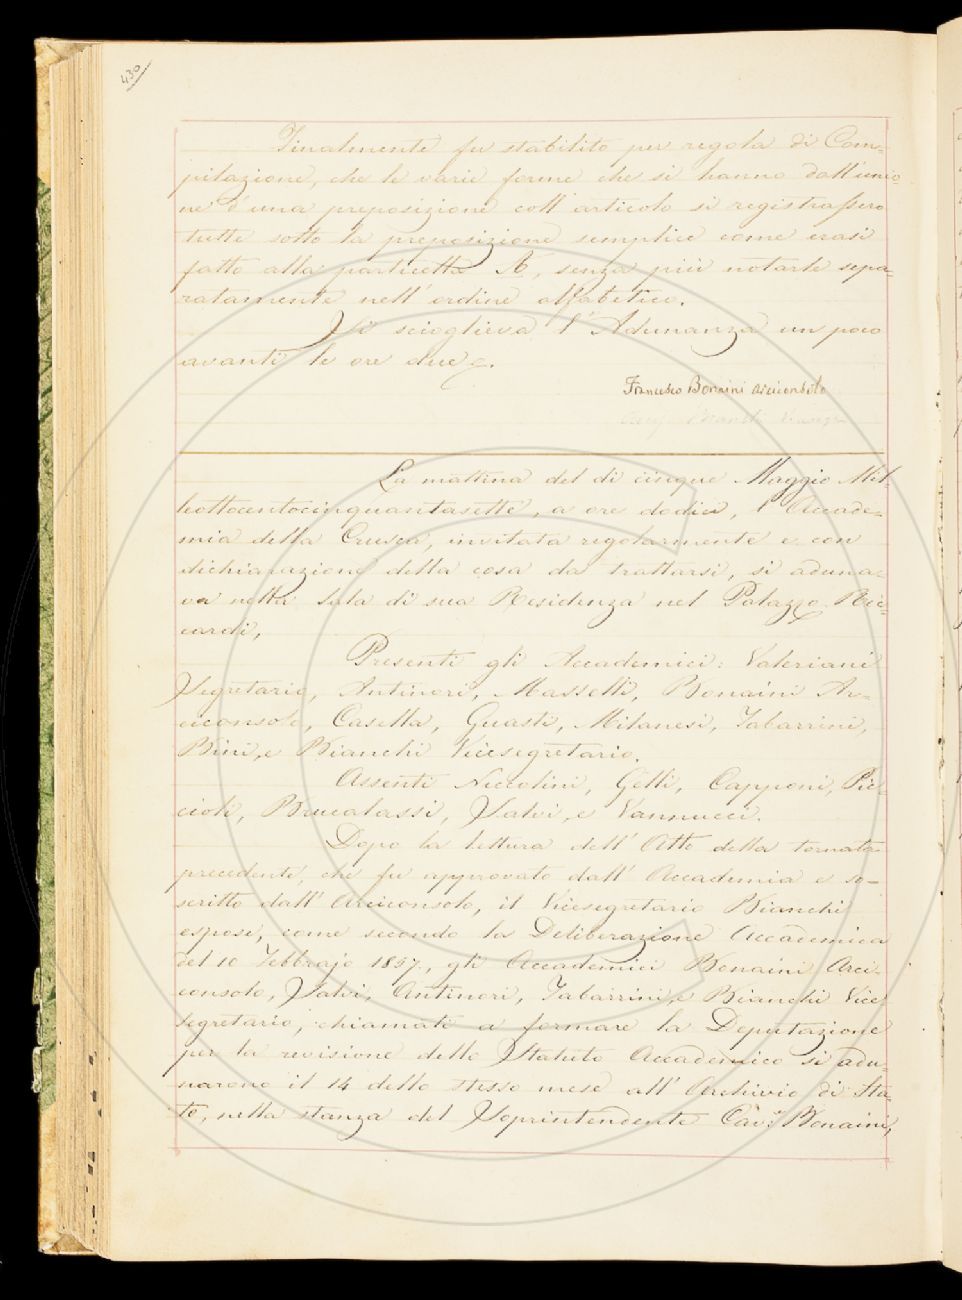 430
Finalmente fu stabilito per regola di Com-
pilazione, che le varie forme che si hanno dall'unio-
ne d'una preposizione coll'articolo si registrassero
tutte sotto la preposizione semplice come erasi
fatto alla particella A, senza più notarle sepa-
ratamente nell'ordine alfabetico.
Si scioglieva l'Adunanza un poco
avanti le ore due.
Francesco Bonaini Arciconsolo
Bianchi
La mattina del dì cinque Maggio Mil-
leottocentocinquantasette, a ore dodici, l'Accade-
mia della Crusca, invitata regolarmente e con
dichiarazione della cosa da trattarsi, si aduna-
va nella Sala di sua Residenza nel Palazzo Ric-
cardi,
Presenti gli Accademici: Valeriani
Segretario, Antinori, Masselli, Bonaini Ar-
ciconsolo, Casella, Guasti, Milanesi, Tabarrini,
Bini, e Bianchi Vicesegretario.
Assenti Niccolini, Gelli, Capponi, Pic-
cioli, Brucalassi, Salvi, e Vannucci.
Dopo la lettura dell'Atto della tornata
precedente, che fu approvato dall'Accademia e so-
scritto dall'Arciconsolo, il Vicesegretario Bianchi
espose, come secondo la Deliberazione Accademica
del 10 Febbrajo 1857., gli Accademici Bonaini Arci-
consolo, Salvi, Antinori, Tabarrini, e Bianchi Vice
segretario, chiamati a formare la Deputazione
per la revisione dello Statuto Accademico si adu-
narono il 14 dello stesso mese all'Archivio di Sta-
to, nella stanza del Soprintendente Cav. Bonaini,